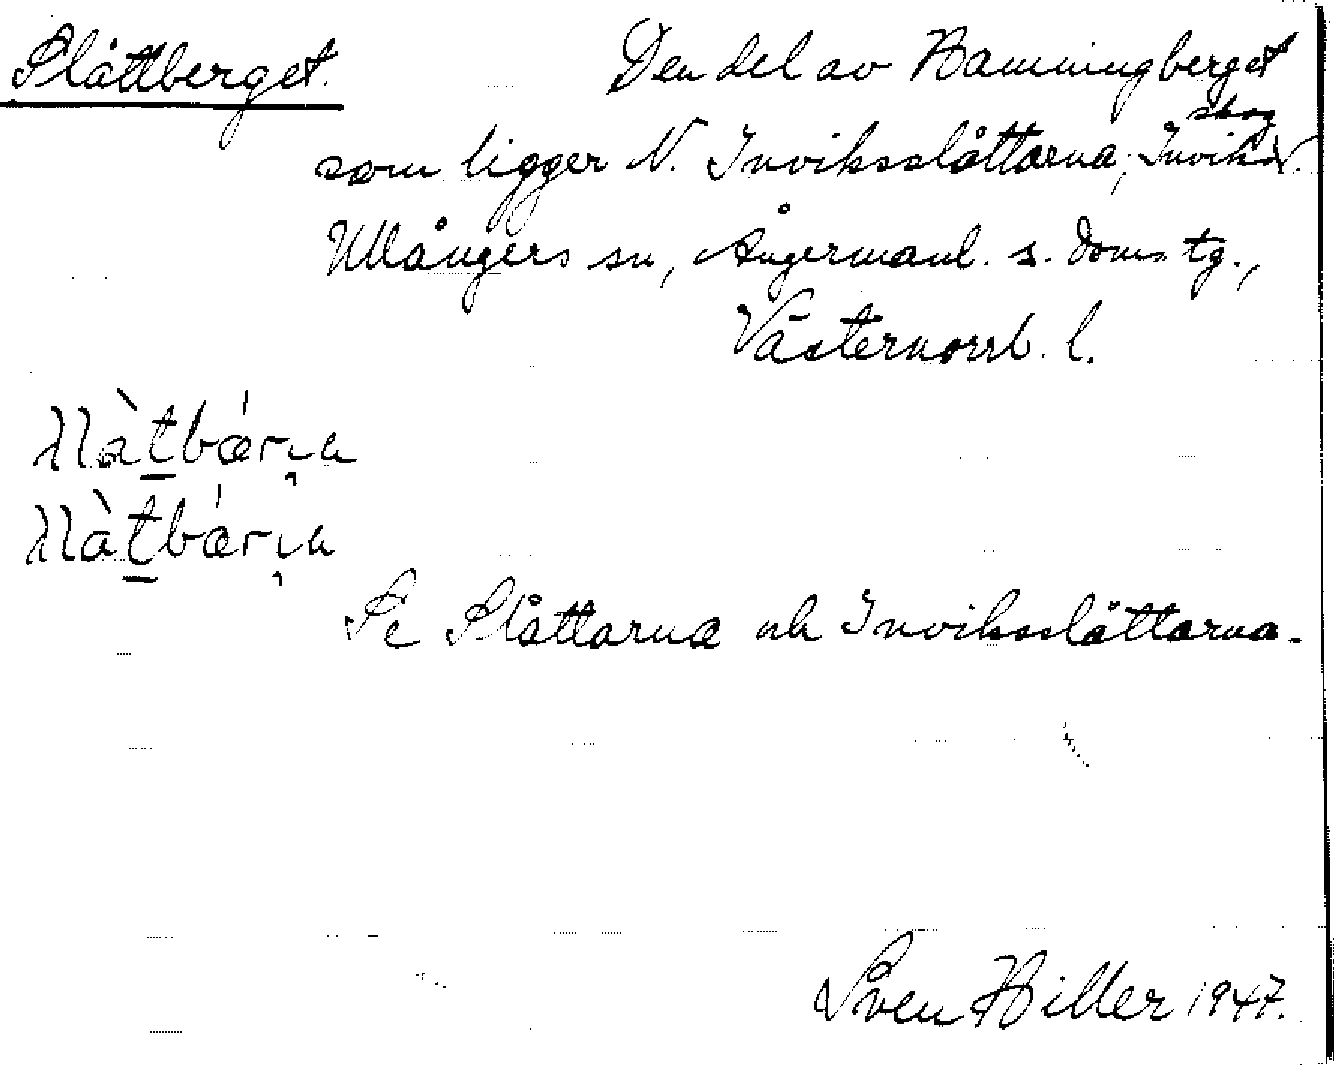 Slåttberget. Den del av Hamningberget
som ligger N. Inviksslåttarna, Inviks skog
Ullångers sn, Ångermanl. s. doms. tg.,
Västernorrl. l.
Se Slåttarna och Inviksslåttarna.
Sven Hiller 1947.